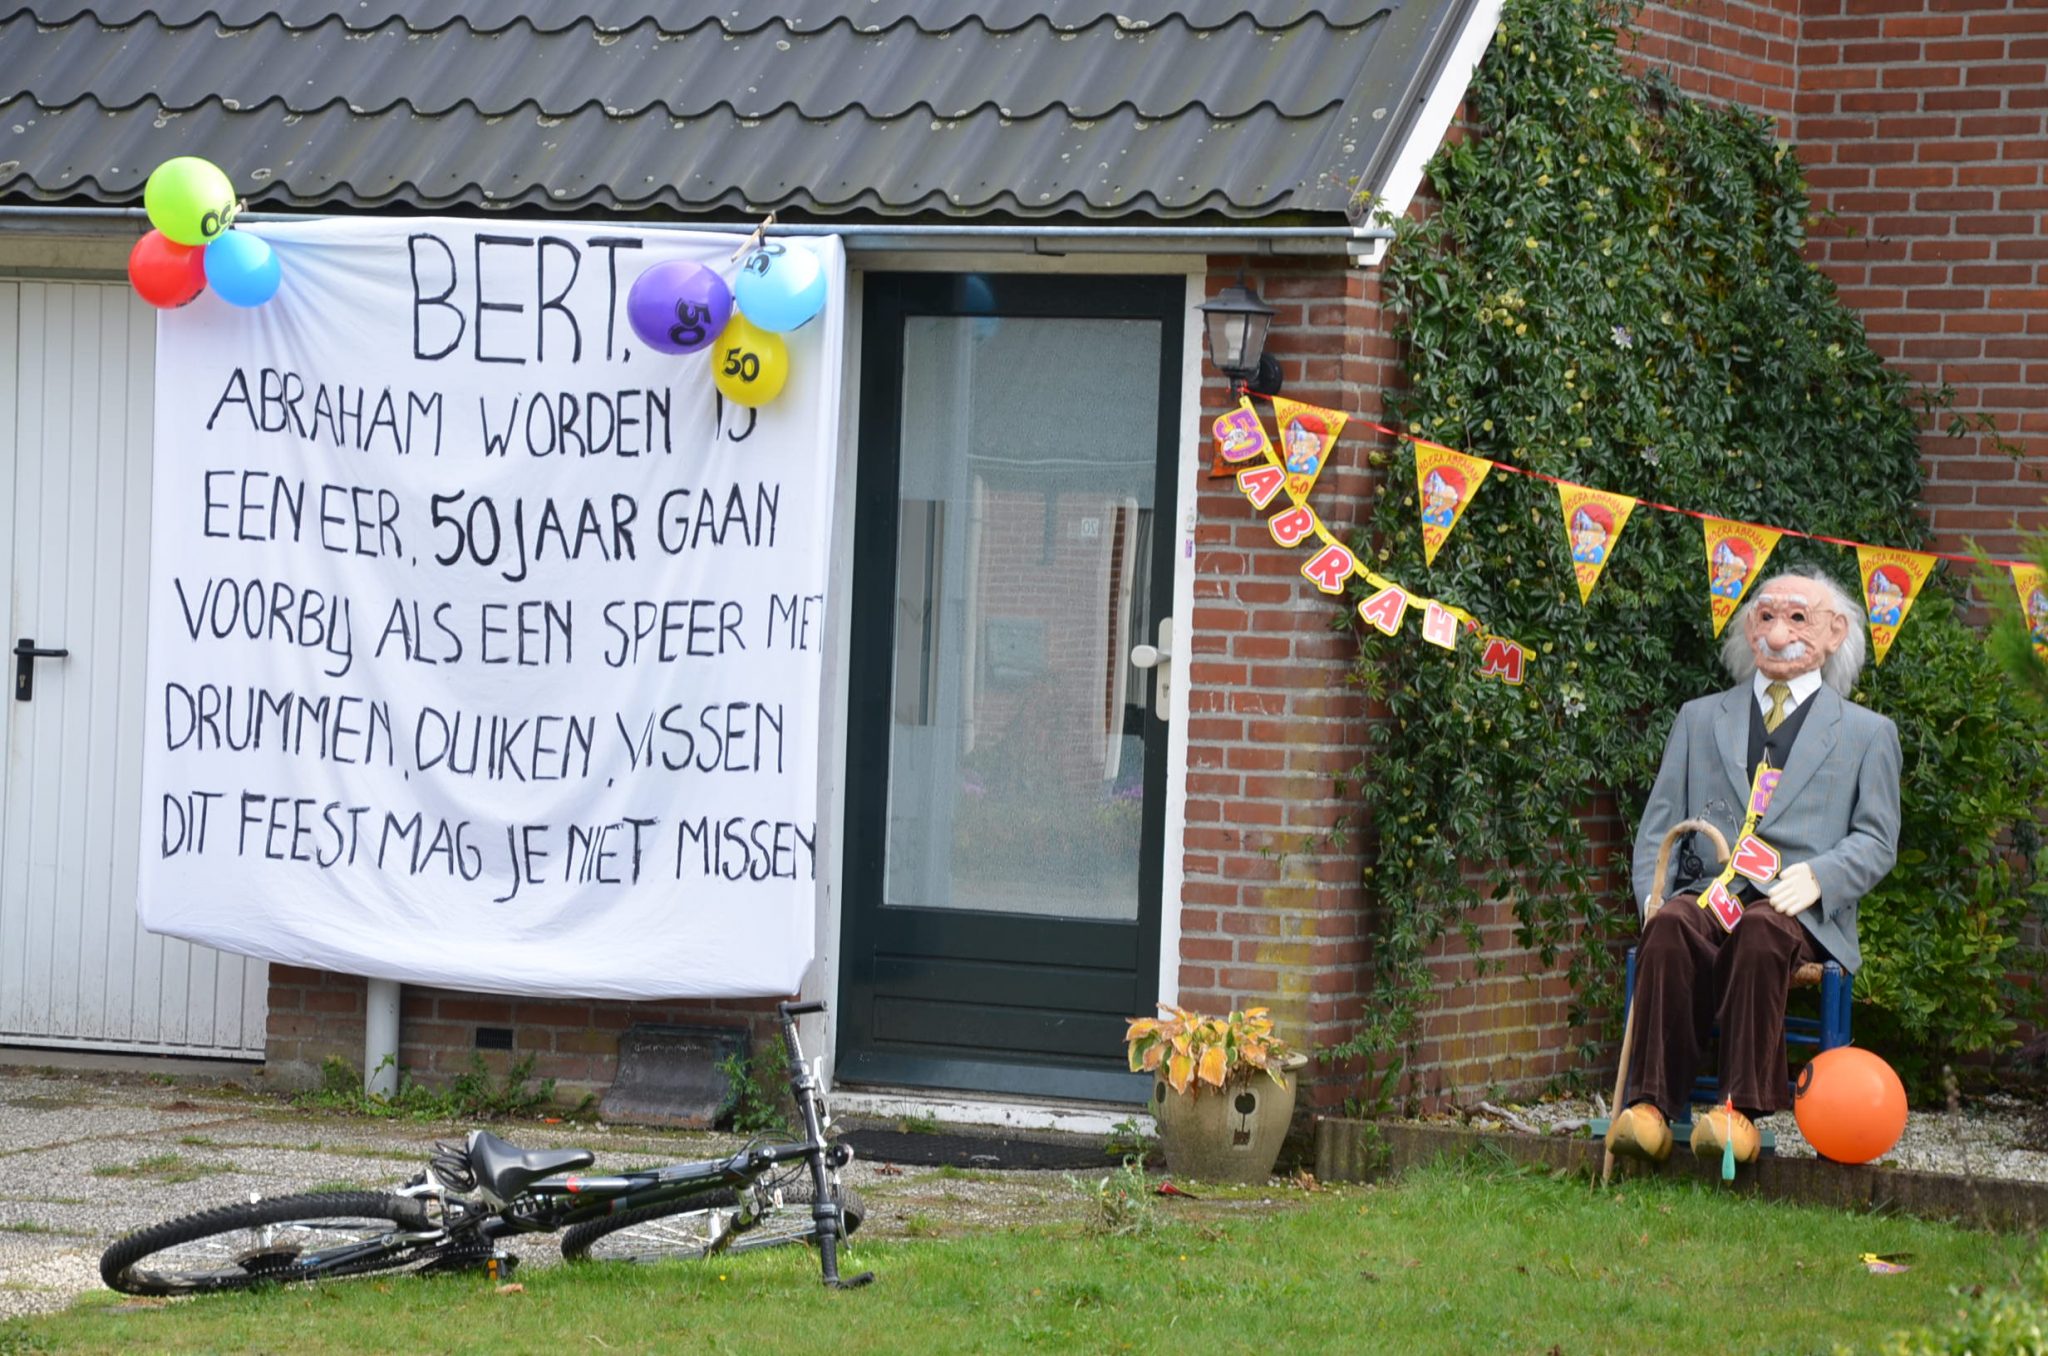 BERT,
ABRAHAM WORDEN IS
EEN EER, 50 JAAR GAAN
VOORBIJ ALS EEN SPEER MET
DRUMMEN, DUIKEN, VISSEN
DIT FEEST MAG JE NIET MISSEN
50
50
50
50
ABRAHAM
HOERA ABRAHAM
50
HOERA ABRAHAM
50
HOERA ABRAHAM
50
HOERA ABRAHAM
50
HOERA ABRAHAM
50
50
N
E